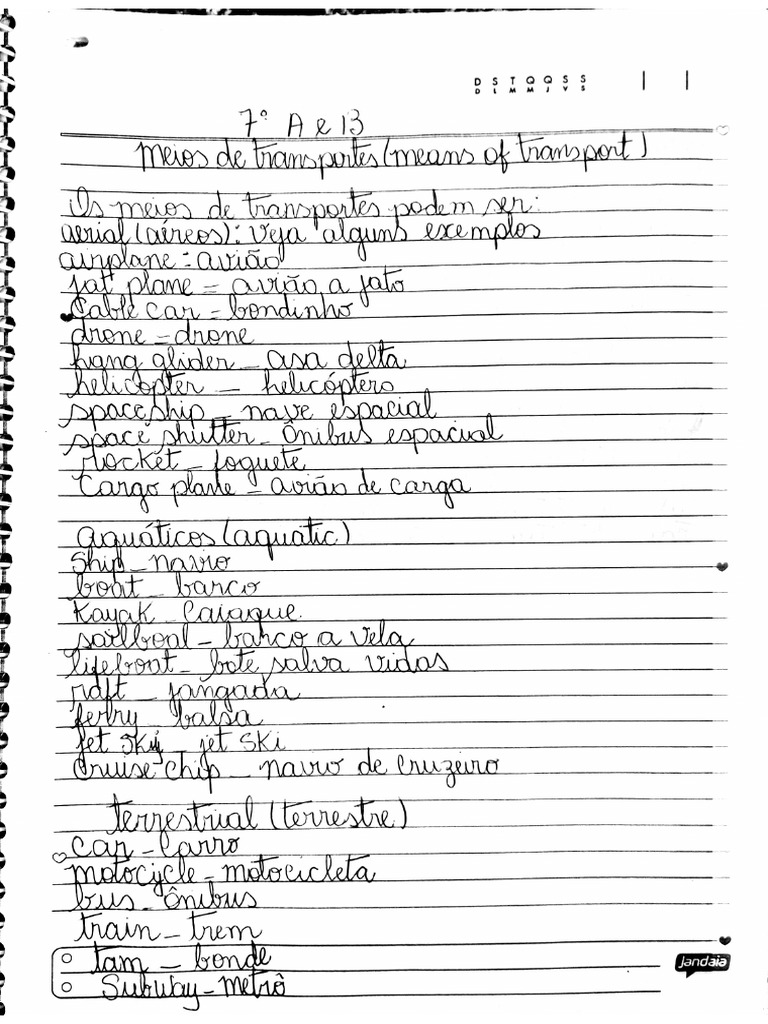 D S T Q Q S S
D L M M J V S
7º A e B
Meios de transportes (means of transport)
Os meios de transportes podem ser:
aerial (aéreos): Veja alguns exemplos
airplane = avião
jat plane = avião a jato
Cable car = bondinho
drone - drone
hang glider - asa delta
helicopter - helicóptero
spaceship - nave espacial
space shutter - Ônibus espacial
Rocket - foguete
Cargo plane - avião de carga
aquáticos (aquatic)
Ship - navio
boat - barco
Kayak - Caiaque.
sailboal - barco a vela
lifeboat - bote salva vidas
raft - jangada
ferry - balsa
jet ski - jet ski
Cruise chip - navio de cruzeiro
terrestrial (terrestre)
Car - Carro
motocycle - motocicleta
bus - Ônibus
train - trem
tam - bonde
Subway - metrô
jandaia